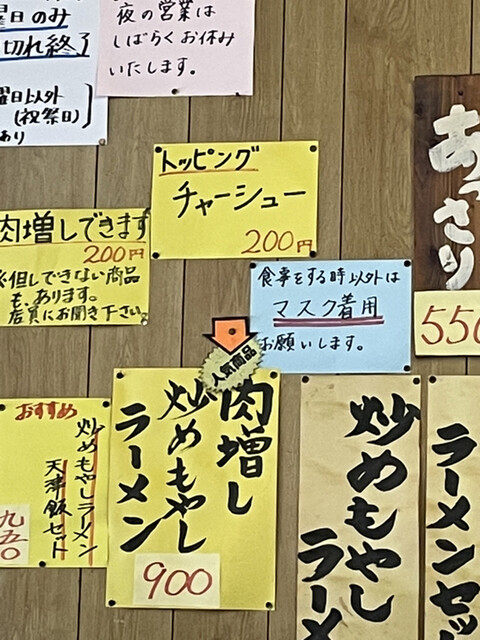 曜日のみ
切れ終了
曜日以外
(祝祭日)
あり
夜の営業は
しばらくお休み
いたします。
トッピング
チャーシュー
200円
肉増しできます
200円
※但しできない商品
も、あります。
店員にお聞き下さい。
食事をする時以外は
マスク着用
お願いします。
あっさり
550
人気商品
肉増し
炒めもやし
ラーメン
900
おすすめ
炒めもやしラーメン
天津飯セット
九五〇
炒めもやし
ラーメ
ラーメンセッ